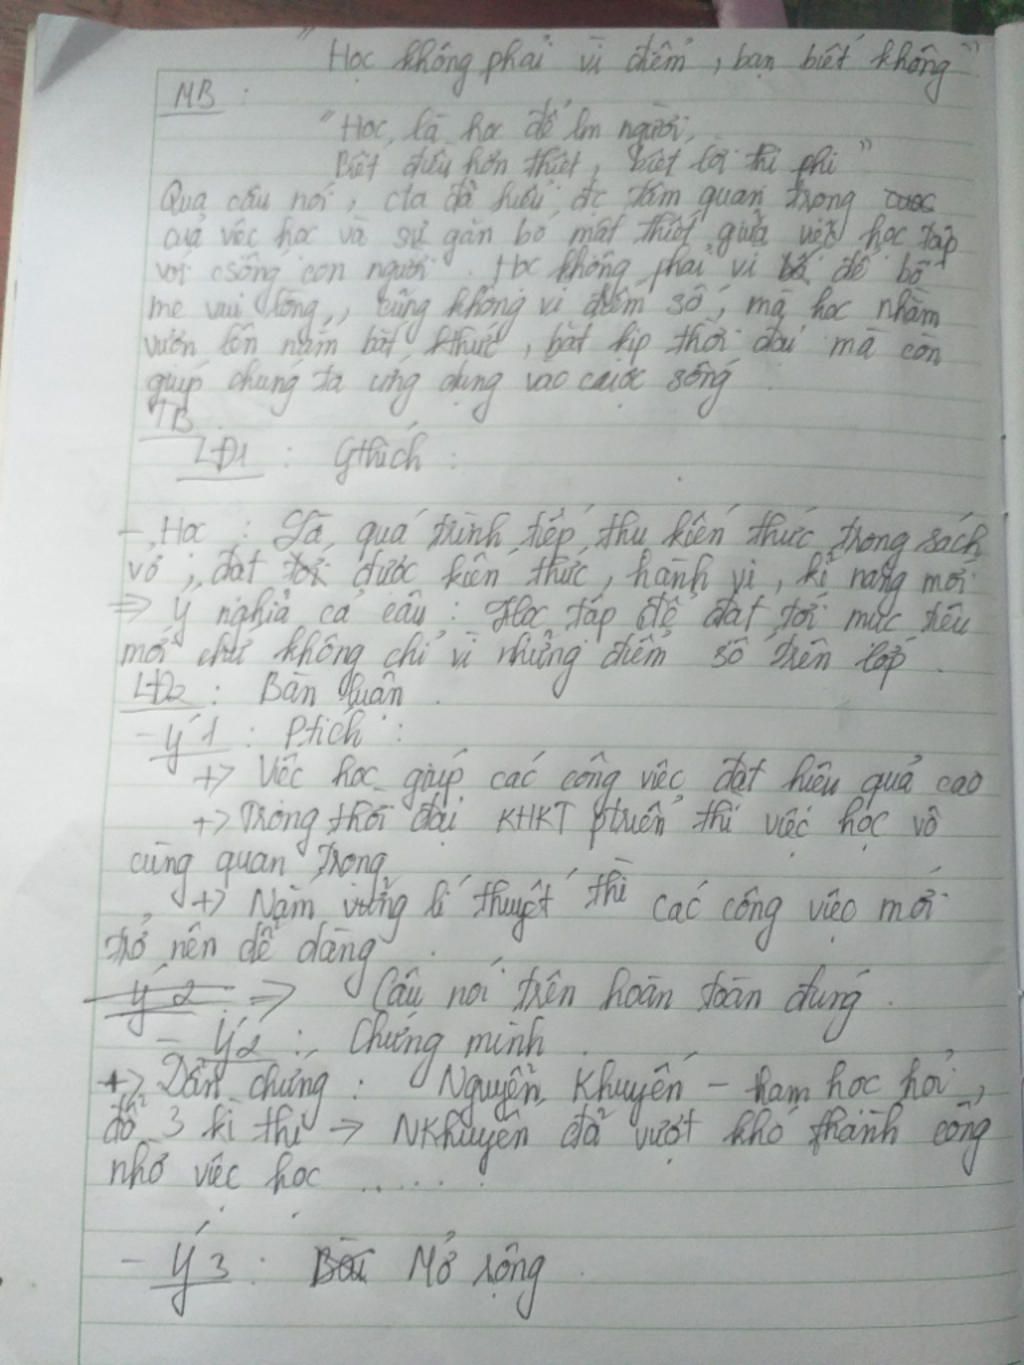 "Học không phải vì điểm, bạn biết không"
MB :
"Học là học để làm người,
Biết điều hơn thiệt, biết lời thị phi"
Qua câu nói, cta đã hiểu đc tầm quan trọng
của việc học và sự gắn bó mật thiết giữa việc học tập
với csống con người. Học không phải vì để bố
mẹ vui lòng, cũng không vì điểm số, mà học nhằm
vươn lên nắm bắt kthức, bắt kịp thời đại mà còn
giúp chúng ta ứng dụng vào cuộc sống.
TB
LĐ1 : Gthích :
- Học : Là quá trình tiếp thu kiến thức trong sách
vở, đạt được kiến thức, hành vi, kĩ năng mới
=> Ý nghĩa cả câu : Học tập để đạt tới mục tiêu
mới chứ không chỉ vì những điểm số trên lớp.
LĐ2 : Bàn luận.
- Ý1 : Ptích :
+> Việc học giúp các công việc đạt hiệu quả cao
+> Trong thời đại KHKT ptriển thì việc học vô
cùng quan trọng
+> Nắm vững lí thuyết thì các công việc mới
trở nên dễ dàng.
=> Câu nói trên hoàn toàn đúng.
- Ý2 : Chứng minh.
+> Dẫn chứng : Nguyễn Khuyến - ham học hỏi,
đỗ 3 kì thi -> NKhuyến đã vượt khó thành công
nhờ việc học .....
- Ý3 : Mở rộng.